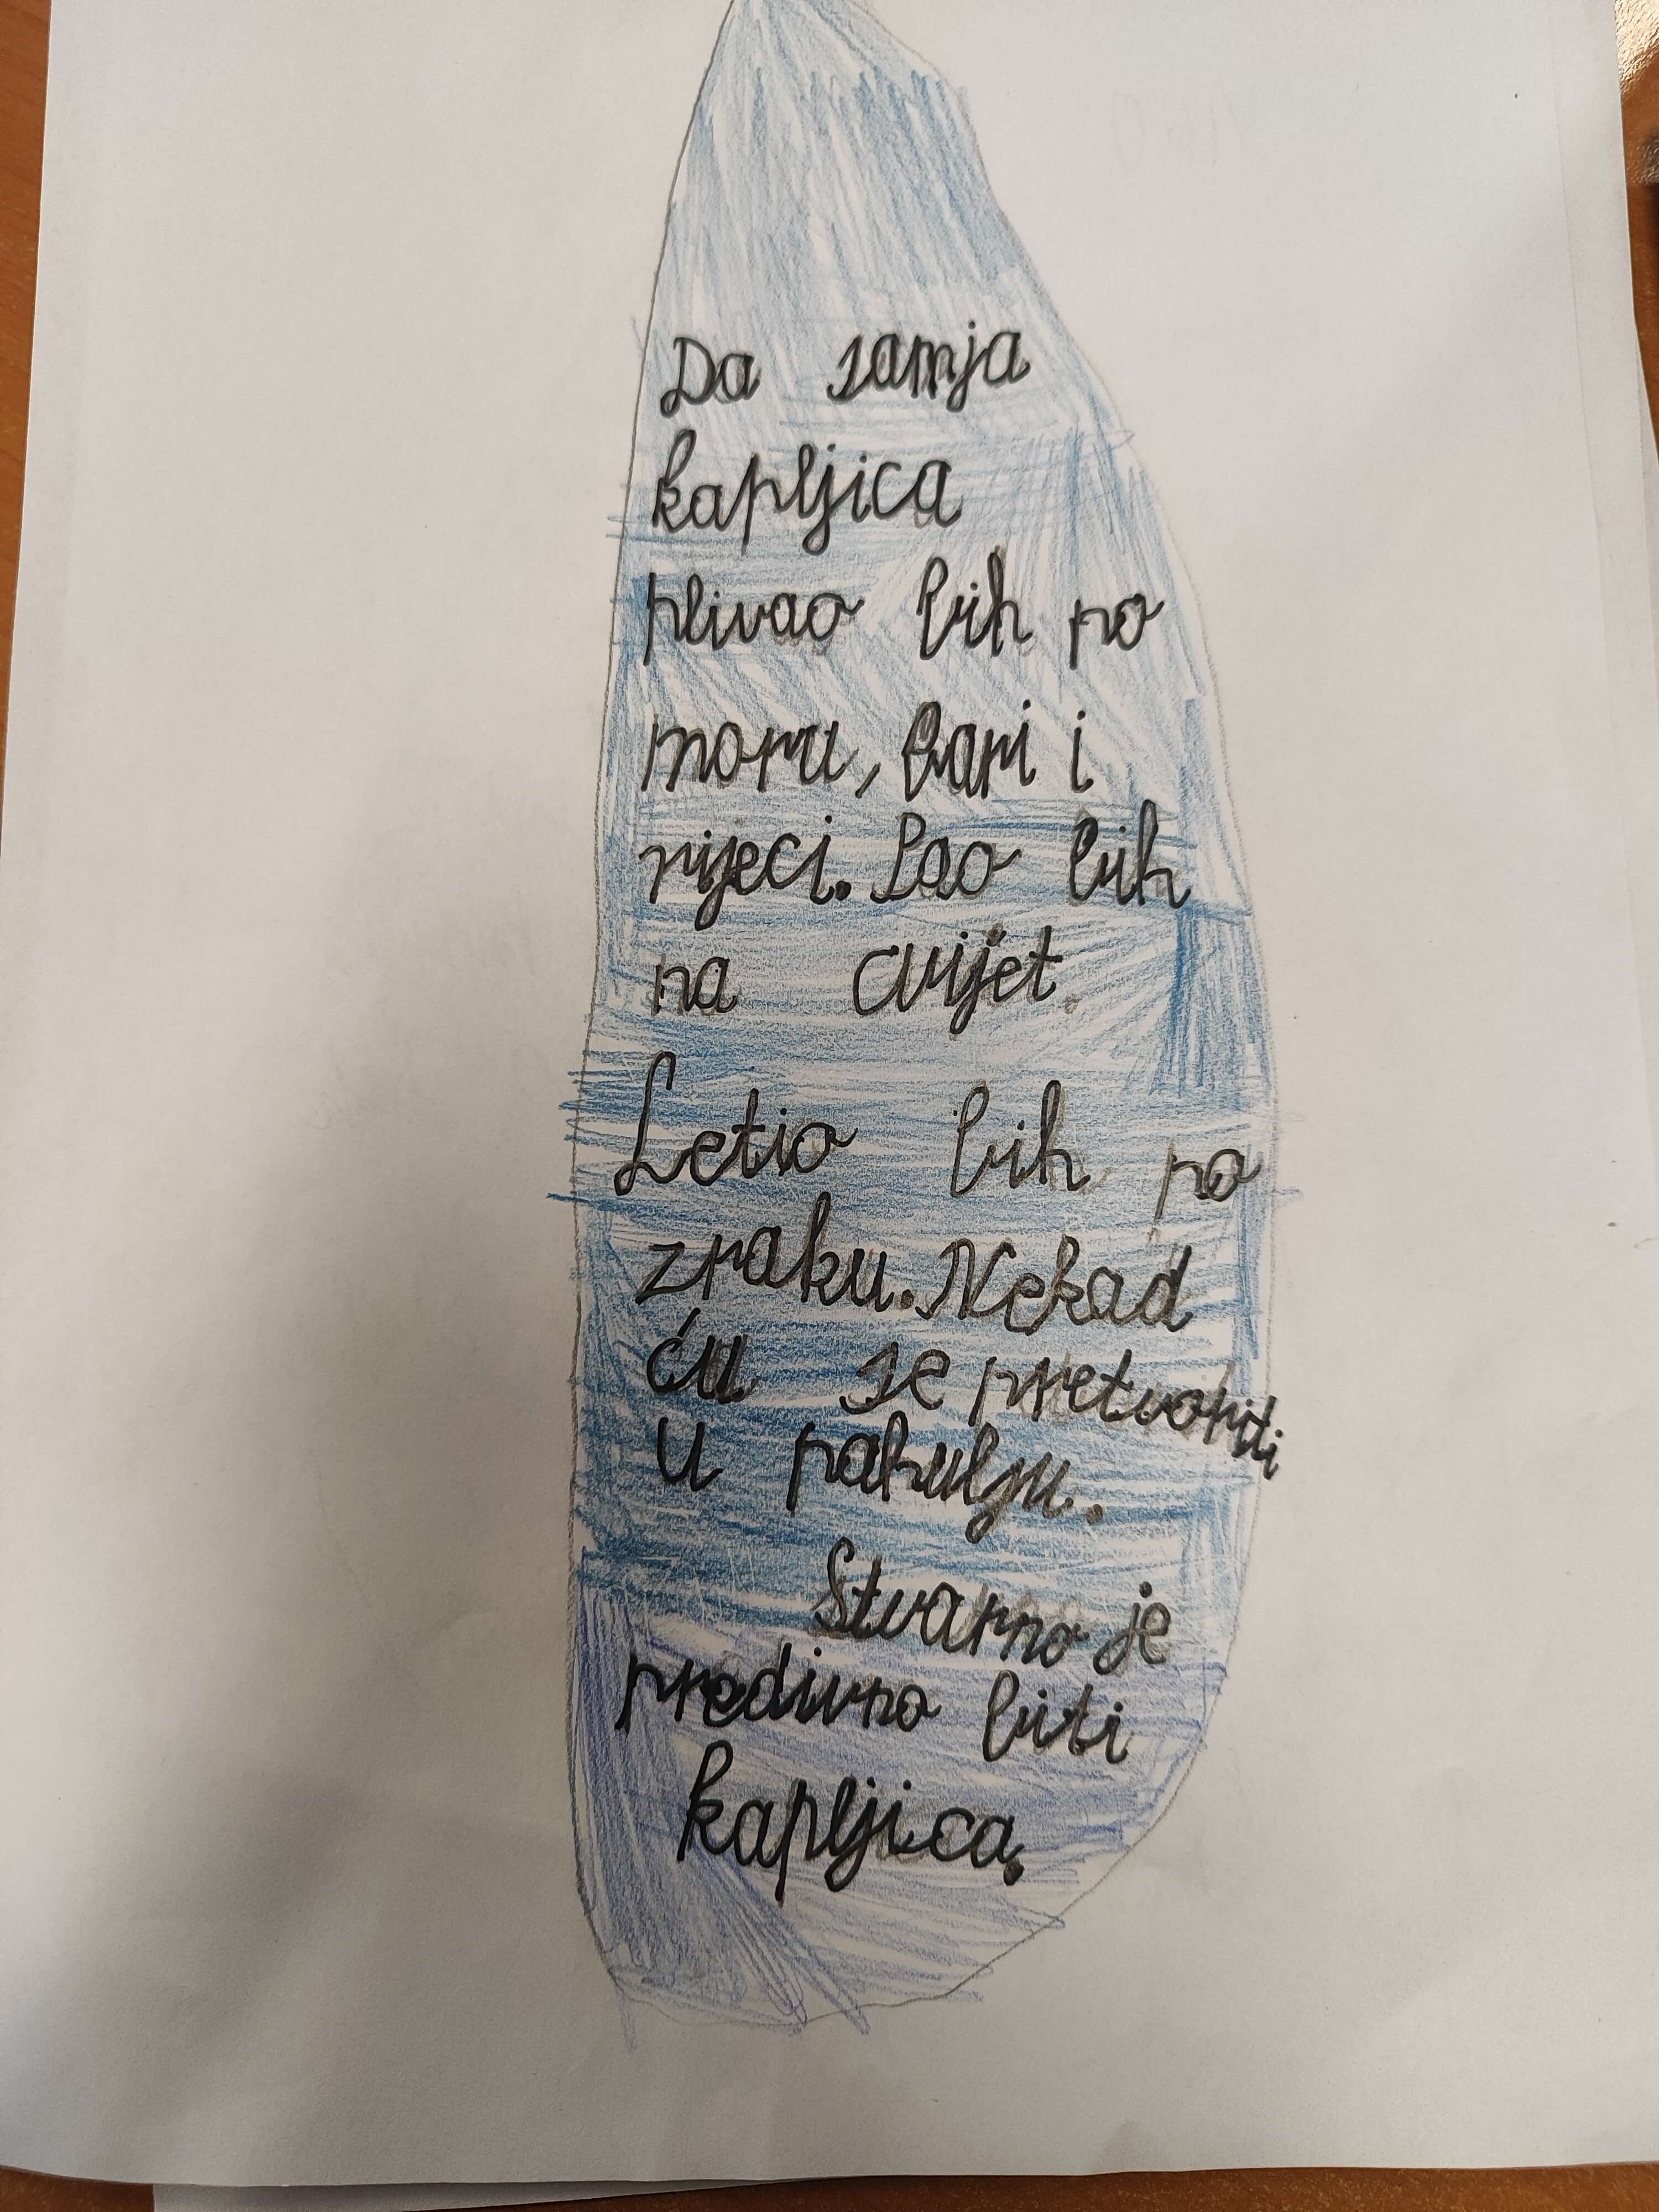 Da samja
kapljica
plivao bih po
moru, bari i
rijeci. Pao bih
na cvijet.
Letio bih po
zraku. Nekad
ću se pretvoriti
u pahulju.
Stvarno je
predivno biti
kapljica.